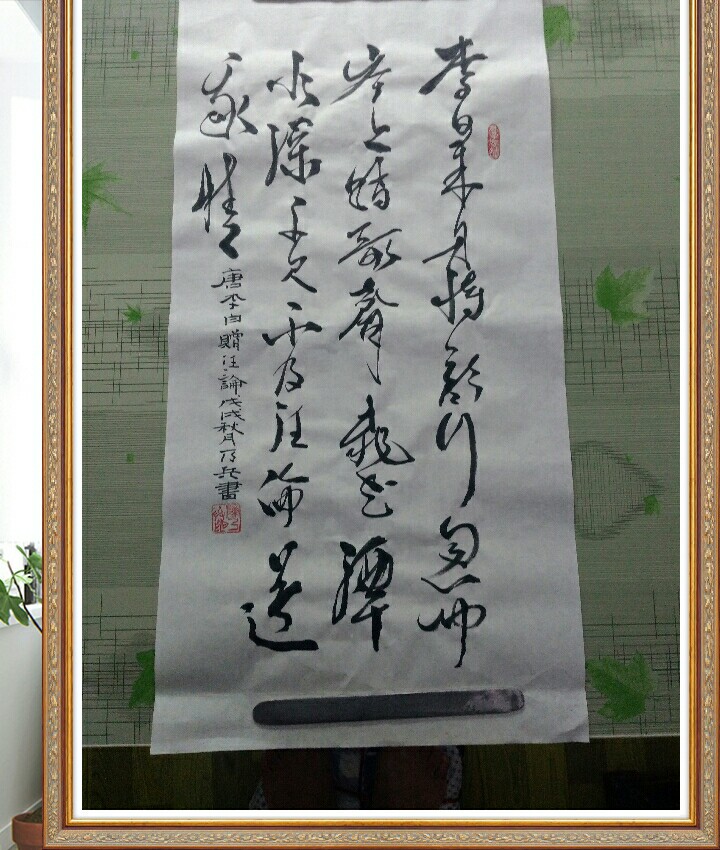 李白乘舟将欲行忽闻
岸上踏歌聲桃花潭
水深千尺不及汪倫送
我情
唐李白贈汪論戊戌秋月乃兵書